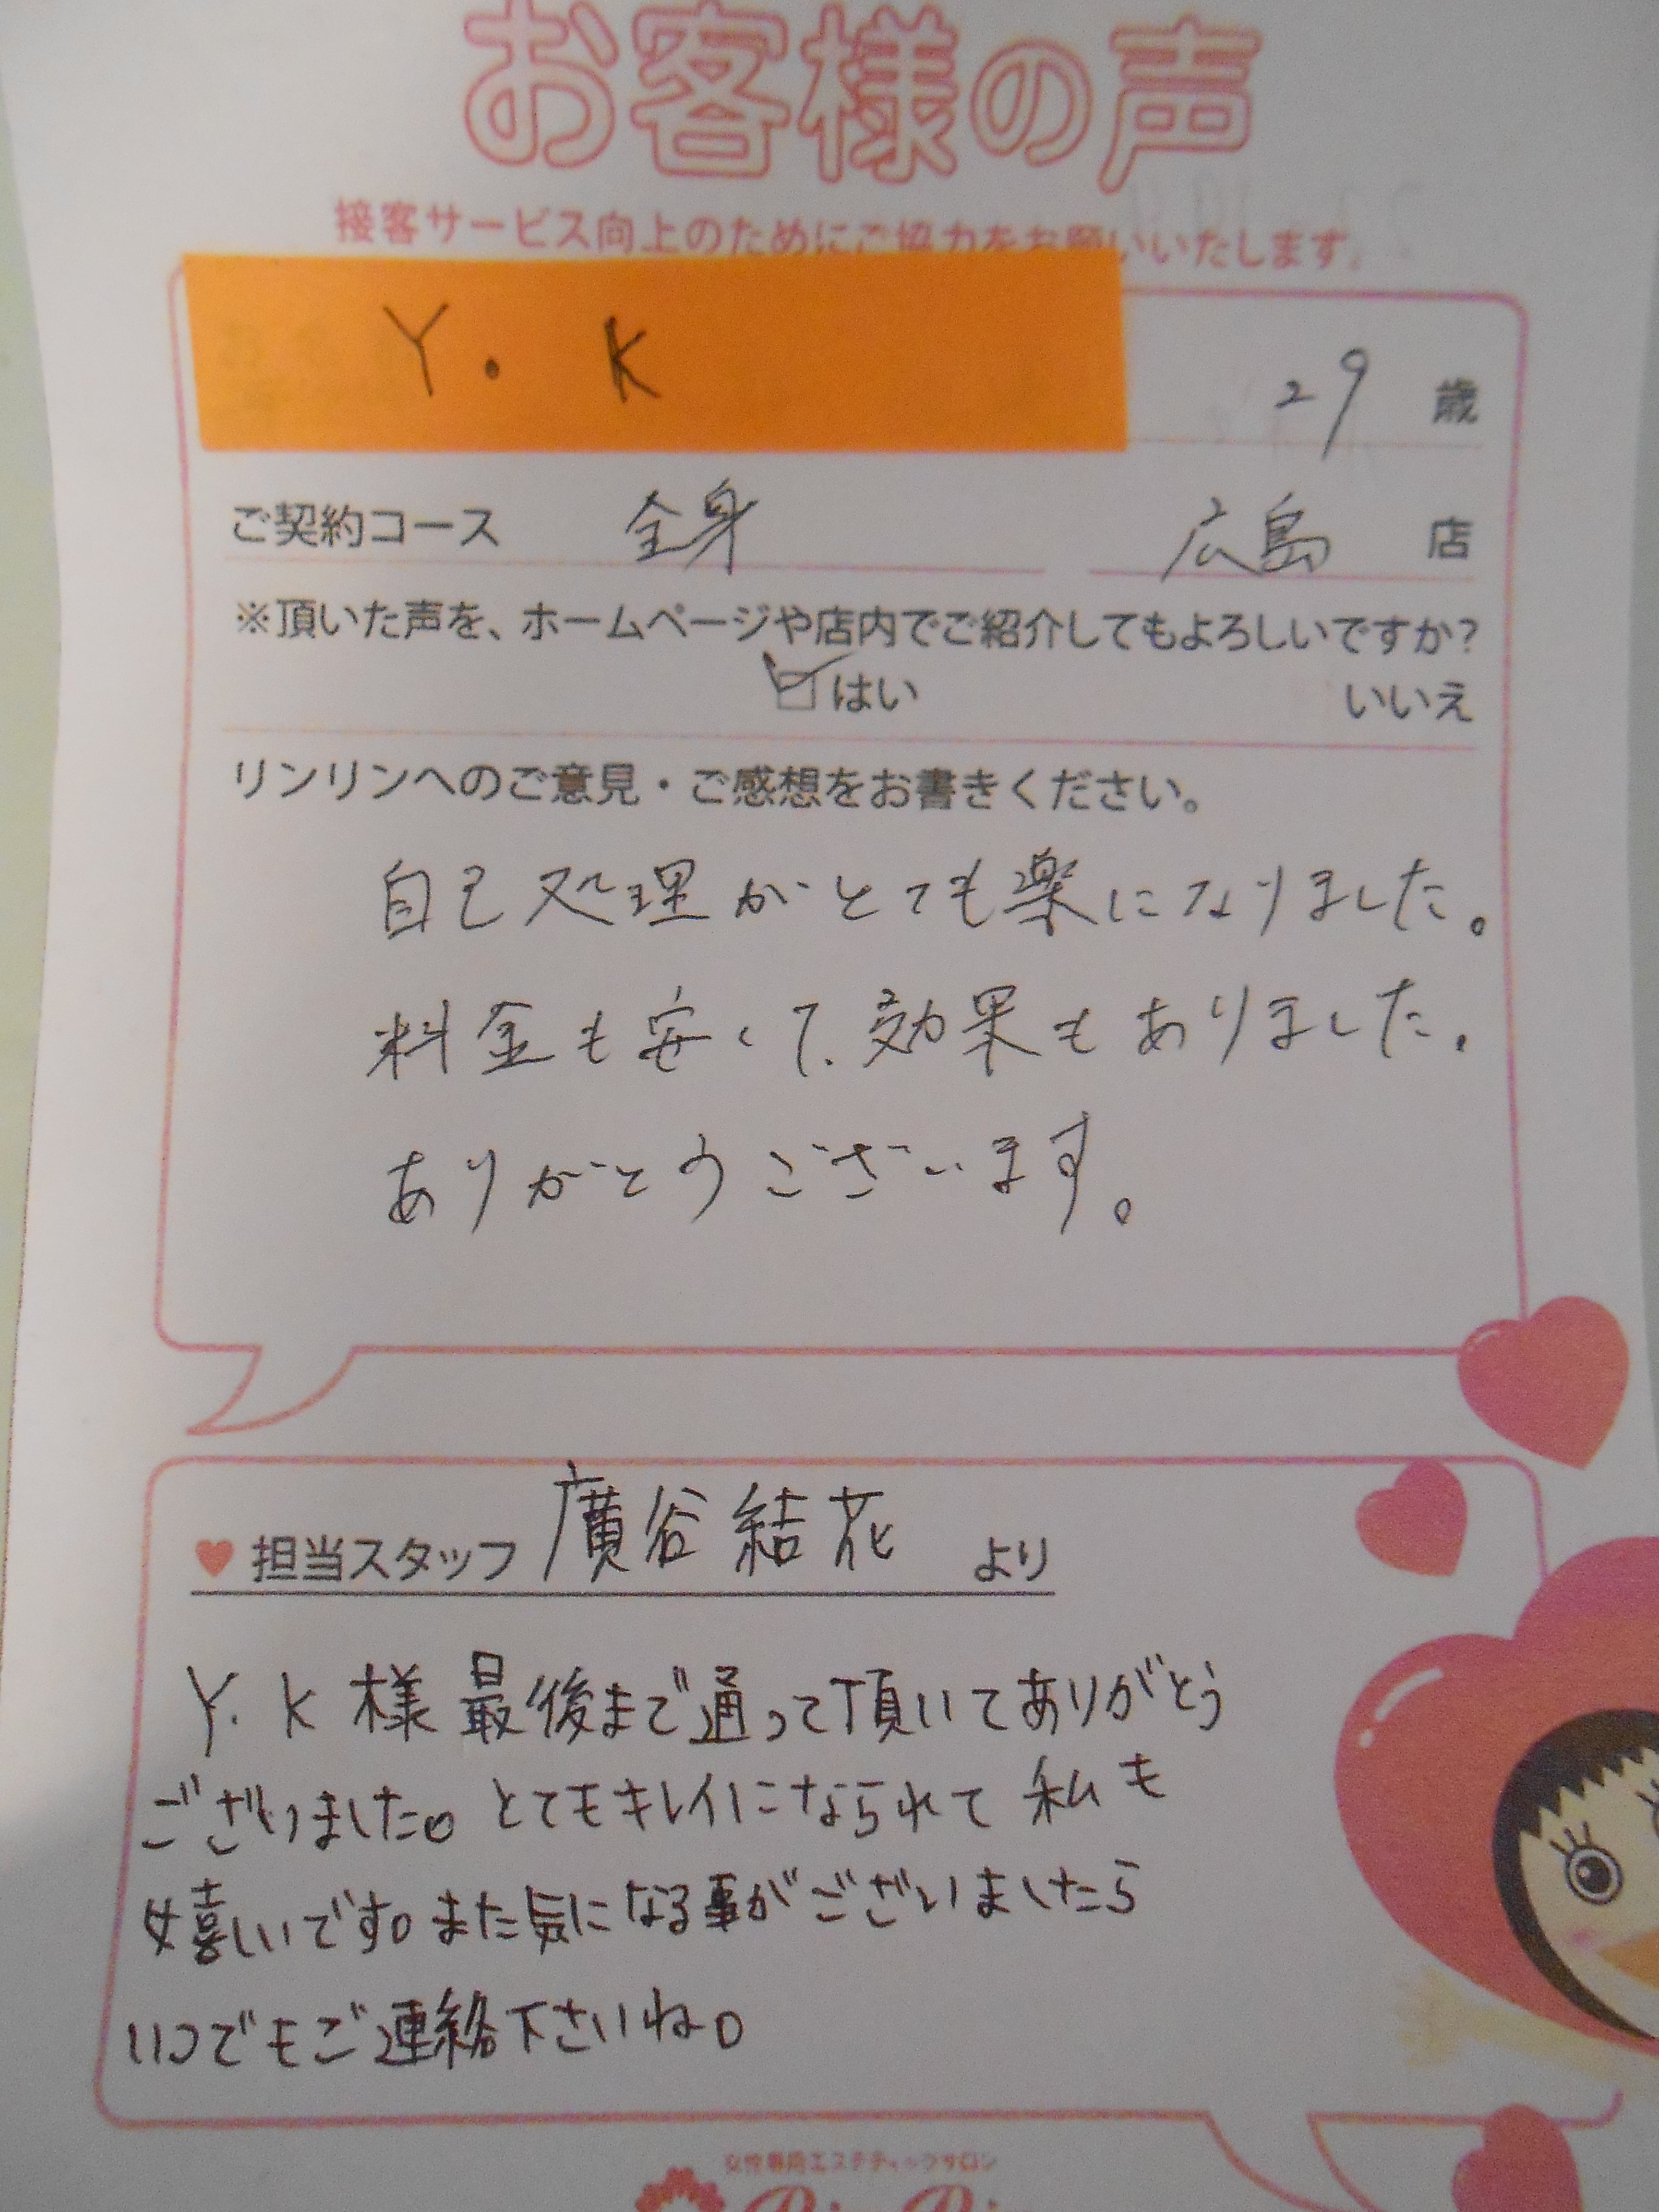 お客様の声
接客サービス向上のためにご協力をお願いいたします。
Y. K 29 歳
ご契約コース 全身 広島 店
※頂いた声を、ホームページや店内でご紹介してもよろしいですか?
はい いいえ
リンリンへのご意見・ご感想をお書きください。
自己処理がとても楽になりました。
料金も安くて、効果もありました。
ありがとうございます。
担当スタッフ 廣谷結花 より
Y. K 様 最後まで通って頂いてありがとう
ございました。とてもキレイになられて 私も
嬉しいです。また気になる事がございましたら
いつでもご連絡下さいね。
女性専用エステティックサロン